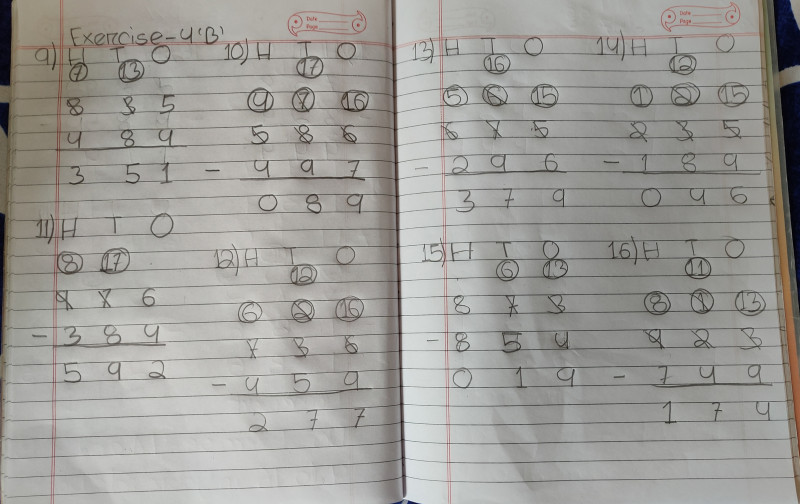 Date
Page
Exercise-4'B'
9) H T O
7 13
8 3 5
4 8 4
3 5 1
10) H T O
17
4 7 16
5 8 6
- 4 9 7
0 8 9
11) H T O
8 17
9 7 6
- 3 8 4
5 9 2
12) H T O
12
6 2 16
7 3 6
- 4 5 9
2 7 7
Date
Page
13) H T O
16
5 6 15
6 7 5
- 2 9 6
3 7 9
14) H T O
12
1 2 15
2 3 5
- 1 8 9
0 4 6
15) H T O
6 13
8 7 3
- 8 5 4
0 1 9
16) H T O
11
8 1 13
9 2 3
- 7 4 9
1 7 4